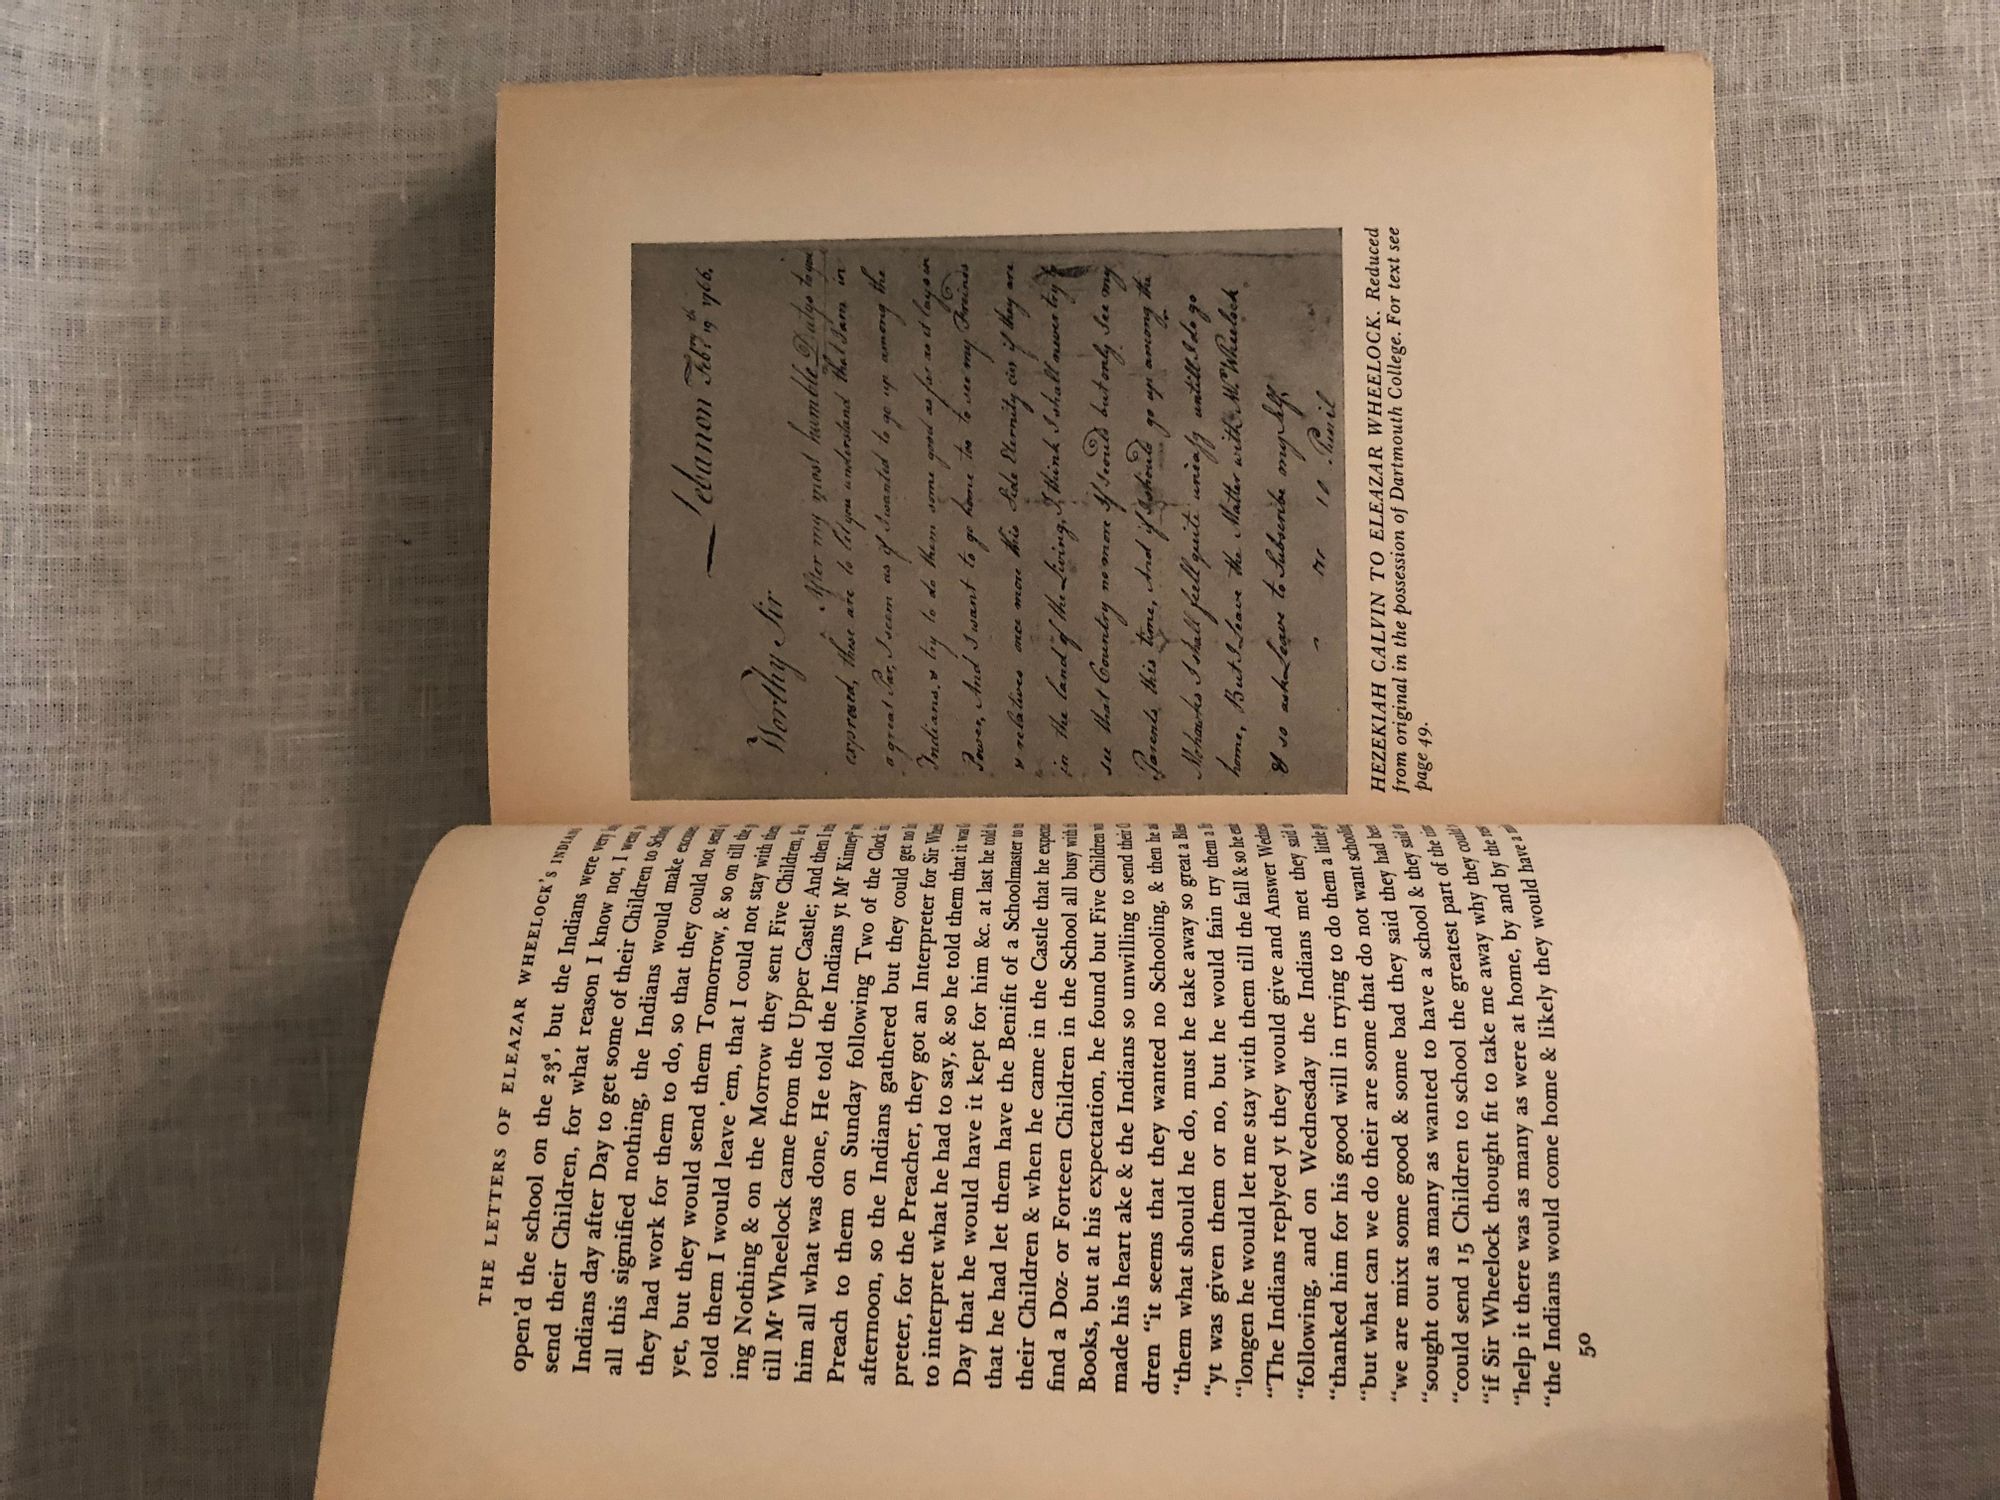 THE LETTERS OF ELEAZAR WHEELOCK'S INDIANS
open'd the school on the 23d, but the Indians were very
send their Children, for what reason I know not, I went
Indians day after Day to get some of their Children to School
all this signified nothing, the Indians would make
they had work for them to do, so that they could not send
yet, but they would send them Tomorrow, & so on till the
told them I would leave 'em, that I could not stay with them
ing Nothing & on the Morrow they sent Five Children,
till Mr Wheelock came from the Upper Castle; And then I
him all what was done, He told the Indians yt Mr Kinney
Preach to them on Sunday following Two of the Clock
afternoon, so the Indians gathered but they could get no
preter, for the Preacher, they got an Interpreter for Sir
to interpret what he had to say, & so he told them that it was
Day that he would have it kept for him &c. at last he told
that he had let them have the Benifit of a Schoolmaster to
their Children & when he came in the Castle that he
find a Doz- or Forteen Children in the School all busy with
Books, but at his expectation, he found but Five Children
made his heart ake & the Indians so unwilling to send their
dren "it seems that they wanted no Schooling, & then he
"them what should he do, must he take away so great a
"yt was given them or no, but he would fain try them a
"longen he would let me stay with them till the fall & so he
"The Indians replyed yt they would give and Answer
"following, and on Wednesday the Indians met they said
"thanked him for his good will in trying to do them a little
"but what can we do their are some that do not want
"we are mixt some good & some bad they said they had
"sought out as many as wanted to have a school & they said
"could send 15 Children to school the greatest part of the
"if Sir Wheelock thought fit to take me away why they could
"help it there was as many as were at home, by and by the
"the Indians would come home & likely they would have a
50
Lebanon Febry 19th 1766,
Worthy Sir
After my most humble Dutys to you
expressed, these are to let you understand that I am in
a great I seem as if I wanted to go up among the
Indians, & try to do them some good as far as it lays in
Power, And I want to go home too to see my Freinds
& relatives once more this Side Eternity if they are
in the land of the Living, I think I shall never try to
see that Country no more If I could but only See my
Parents this time, And if I should go up among the
Mohawks I shall feell quite uneasy untill I do go
home, But I Leave the Matter with Mr Wheelock
& so ask Leave to Subscribe my Self
Pupil
HEZEKIAH CALVIN TO ELEAZAR WHEELOCK. Reduced
from original in the possession of Dartmouth College. For text see
page 49.